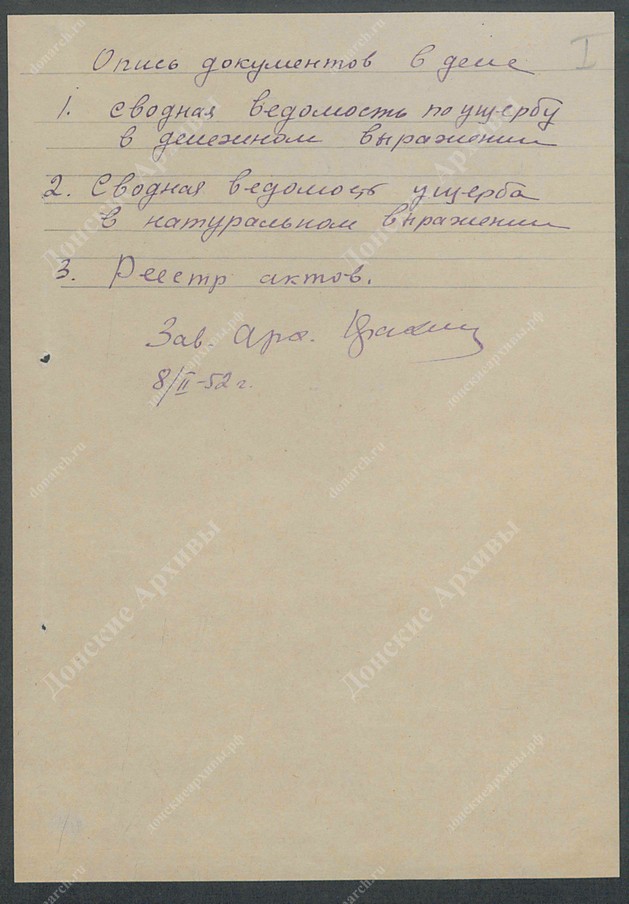 I
Опись документов в деле
1. Сводная ведомость по ущербу
в денежном выражении
2. Сводная ведомость ущерба
в натуральном выражении
3. Реестр актов.
Зав. Арх.
8/II-52 г.
Донские Архивы
donarch.ru
донскиеархивы.рф